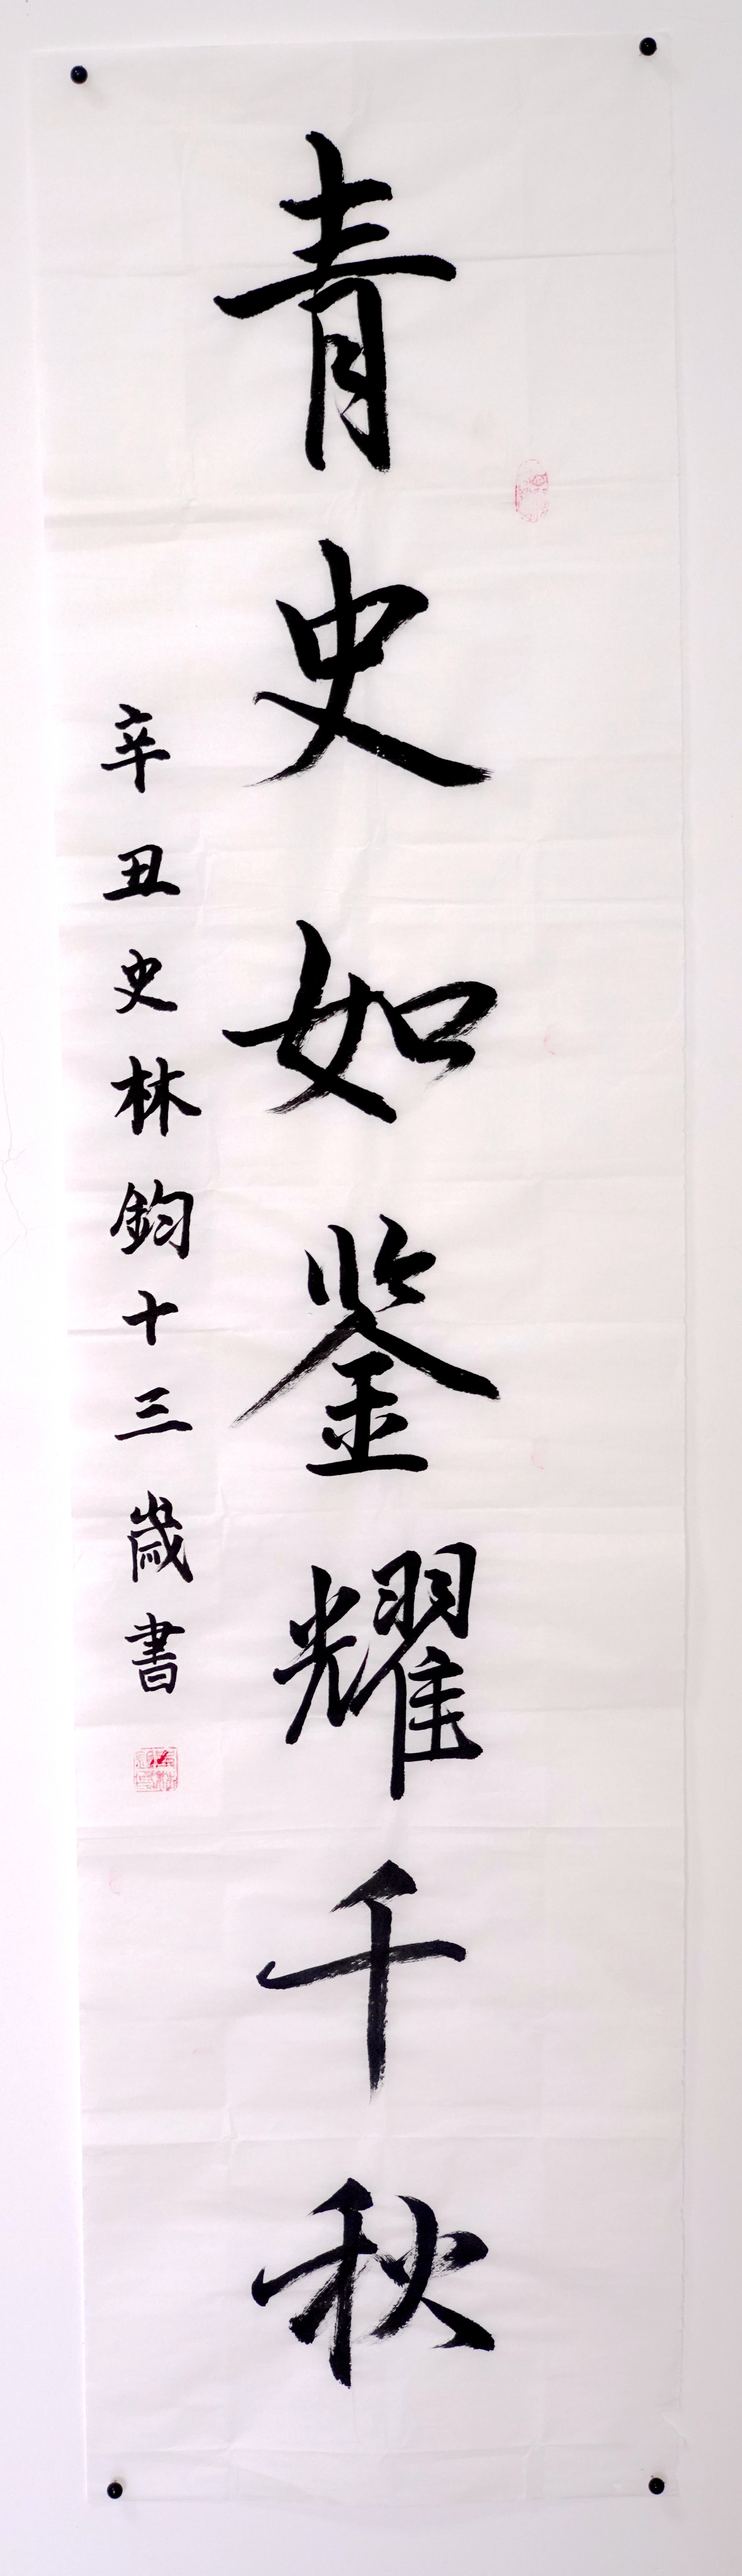 青史如鉴耀千秋
辛丑史林鈞十三歲書